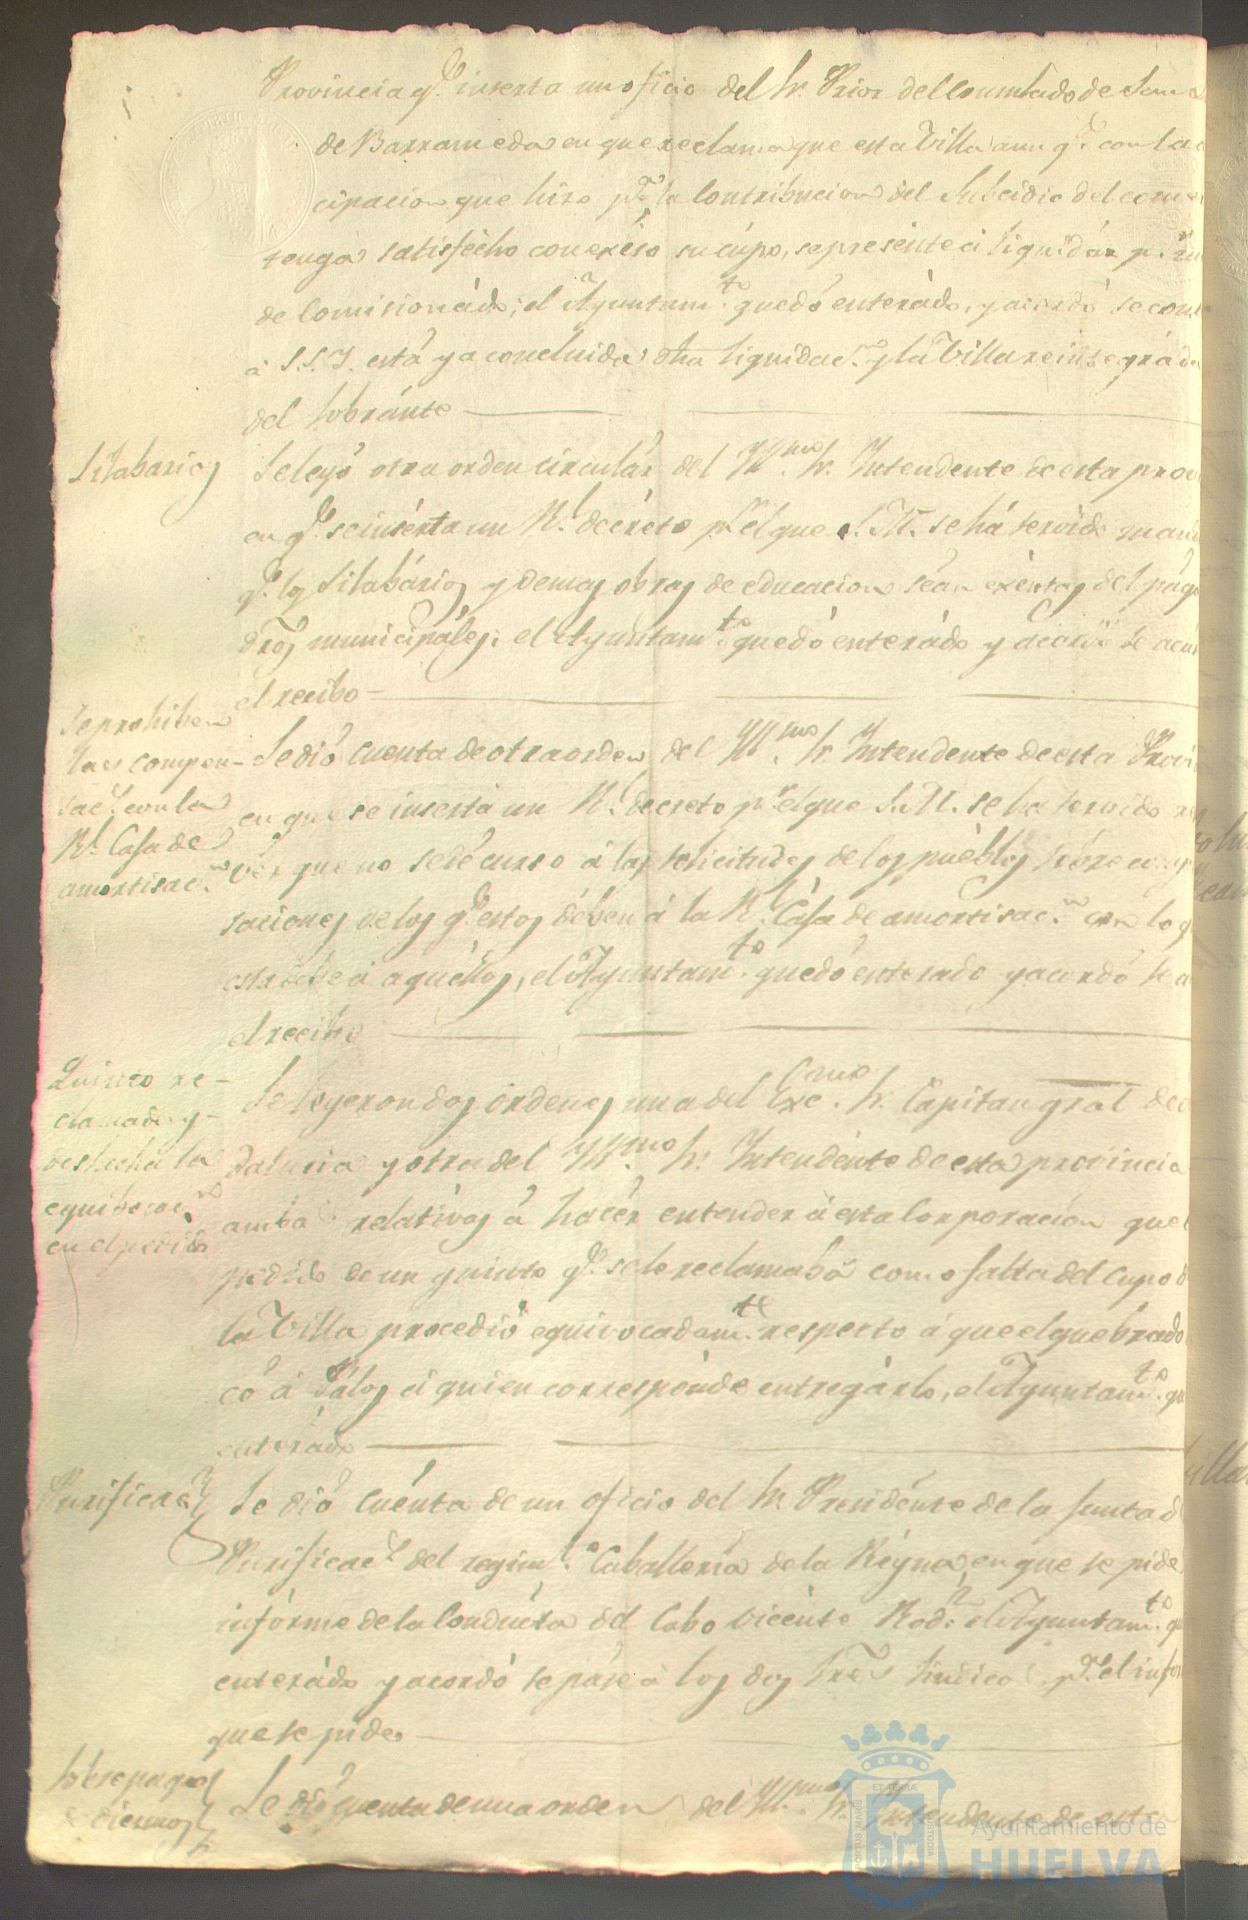 Provincia q.e inserta un oficio del Sr. Prior del Consulado de San
de Barrameda en que reclama que esta Villa aun q.e con la
cipacion que hizo p.a la Contribucion del Subcidio del comer
tenga satisfecho con exéso su cúpo, se presente á liquidár p.r
de Comisionádo; el Ayuntam.to quedó enterádo, y acordó se con
á S.S.I. está ya concluida dha liquidac.n y la Villa reintegráda
del sobránte
Silabarios
Se leyó otra orden circulár del Yll.mo Sr. Yntendente de esta prov
en q.e se insérta un R.l decréto p.r el que S.M. se há servido mand
q.e los Silabários y demas obras de educacion séan exéntas del pág
dros municipáles; el Ayuntam.to quedó enterádo y acordó se acu
el recibo
Se prohiben
las compen-
sac.s con la
R.l Casa de
amortisac.n
Se dió cuenta de otra orden del Yll.mo Sr. Yntendente de esta Provi
en que se inserta un R.l decreto p.r el que S.M. se ha servido re
vér que no se dé curso á las solicitudes de los puéblos sóbre
saciones de los q.e estos dében á la R.l Cása de amortisac.n con lo q
esta débe á aquéllos, el Ayuntam.to quedó enterado y acordó se a
el recibo
Quinto re-
clamado y-
deshecha la
equibocac.n
en el pedido
Se leyeron dos órdenes una del Exc.mo Sr. Capitan gral de
dalucia y otra del Yll.mo Sr. Yntendénte de esta provincia
ambas relatívas á hacér entender á esta Corporacion que
pedido de un quinto q.e se le reclamabá como falta del cupo d
la Villa procedió equivocadam.te respecto á que el quebrado
có á Pálos á quien correspónde entregárlo, el Ayuntam.to qu
enterádo
Purificac.n
Se dió cuénta de un oficio del Sr. Presidénte de la Junta d
Purificac.s del regim.to Caballería de la Réyna, en que se pide
infórme de la Condúcta del Cabo Vicénte Rod.z el Ayuntam.to qu
enterádo y acordó se páse á los dos Sres Sindicos p.a el infor
que se pide
Sobre pago
de diezmos
Se dió cuenta de una orden del Yll.mo Sr. Yntendente de esta
PORTUS MARIS
ET TERRÆ
CUSTODIA
Ayuntamiento de
HUELVA